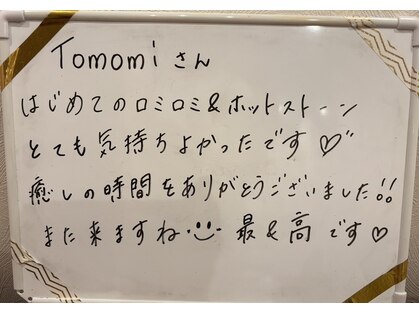 Tomomiさん
はじめてのロミロミ&ホットストーン
とても気持ちよかったです♡
癒しの時間をありがとうございました!!
また来ますね 最&高です♡